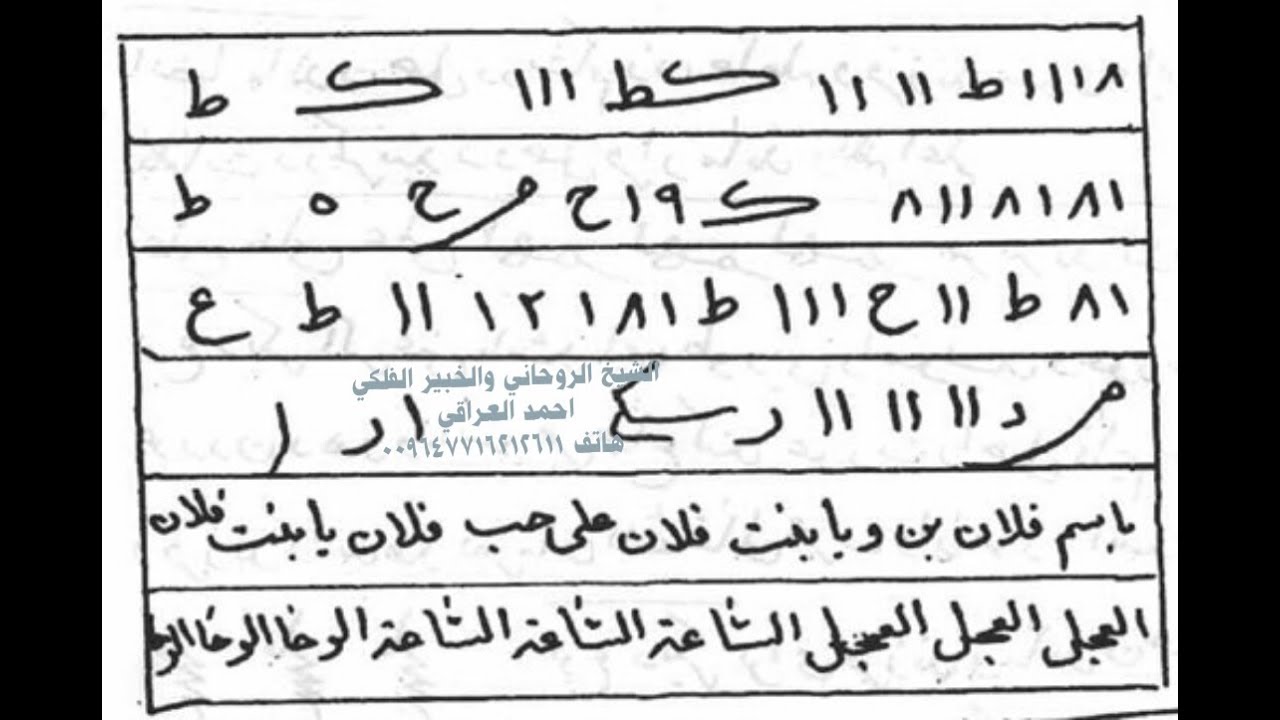 ٨١١١ط ١١ ١١ کط ١١١ ک ط
٨١ ٨١ ٨١١ ٨ ک ٩ ١ح مرح ٥ ط
٨١ ط ١١ ح ١١١ ط ٨١ ١ ٢ ١ ١١ ط ع
الشيخ الروحاني والخبير الفلكي
احمد العراقي
هاتف ٠٠٩٦٤٧٧١٦٢١٢٦١١
باسم فلان بن ويا بنت فلان على حب فلان يا بنت فلان
العجل العجل العجل الساعة الساعة الساعة الوحا الوحا